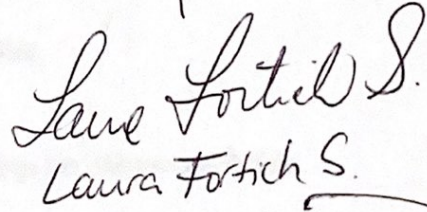 Laura Fortich S.
Laura Fortich S.